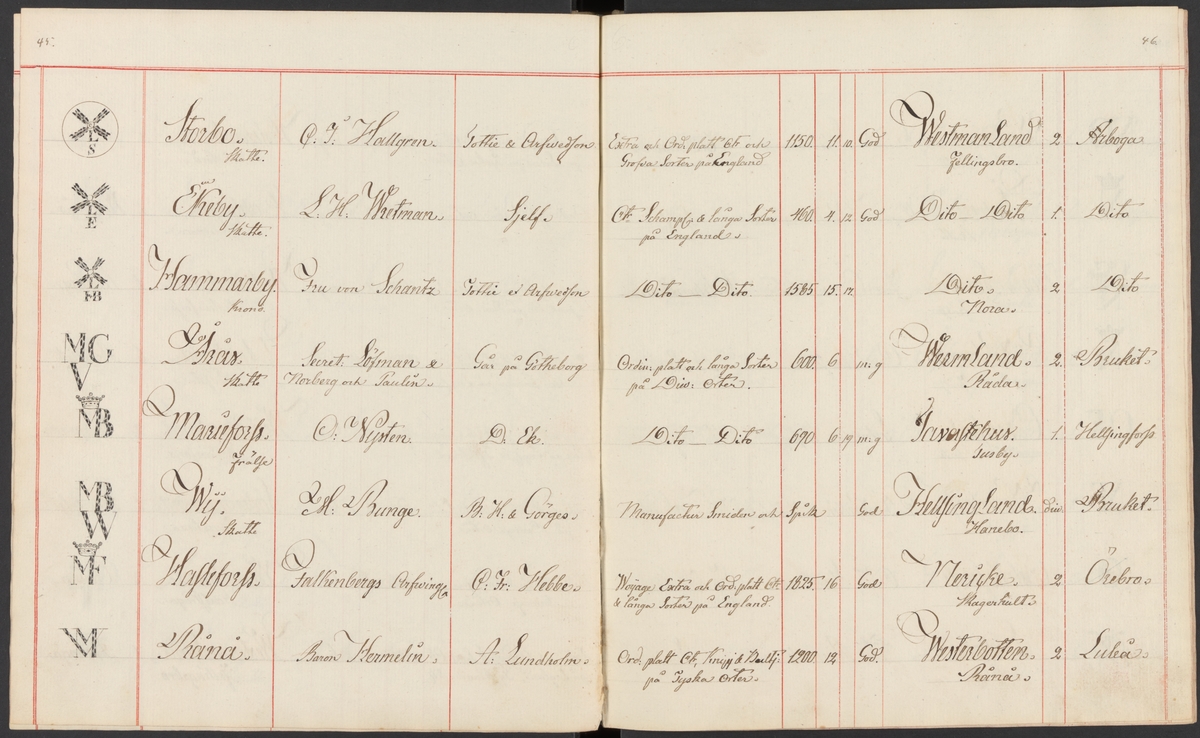 45.
46.
L
S
Storbo.
Skatte.
C. J. Hallgren.
Tottie & Arfwedson
Extra och Ord. platt Ck och
Grofva Sorter på England
1150. 11. 10. God
Westmanland
Fellingsbro.
2 Arboga
L
E
Ekeby.
Skatte.
L. H. Wretman.
Sjelf.
Ck Schampf. & långa Sorter
på England.
460. 4. 12 God
Dito Dito 1. Dito
L
HB
Hammarby
Krono.
Fru von Schantz
Tottie et Arfwedson
Dito — Dito. 1585 15. 17.
Dito.
Nora.
2 Dito
MG
V
Åråx.
Skatte
Secret: Löfman &
Norberg och Paulin.
Går på Götheborg
Ordin: platt och långa Sorter
på Div: Orter.
600. 6 m: g
Wermland.
Råda.
2. Bruket.
MB
Marieforss.
frälse
C: Nysten.
D: Ek.
Dito — Dito 690 6 19 m: g
Tavastehus.
Tusby.
1. Hellsingforss
MB
W
Wij.
Skatte
M: Bunge.
B: H: & Görges.
Manufactur Smiden och Spik God
Hellsingland.
Hanebo.
div. Bruket.
MF
Hasseforss.
Falkenbergs Arfwingar
C: Fr: Hebbe.
Woyage Extra och Ord: platt Ck
& långa Sorter på England.
1825. 16 God
Nericke.
Skagerhult.
2 Örebro.
Rånå.
Baron Hermelin.
A: Lundholm.
Ord: platt Ck, Knipp & Bultj:
på Tyska Orter.
1200. 12 God.
Westerbotten.
Rånå.
2 Luleå.